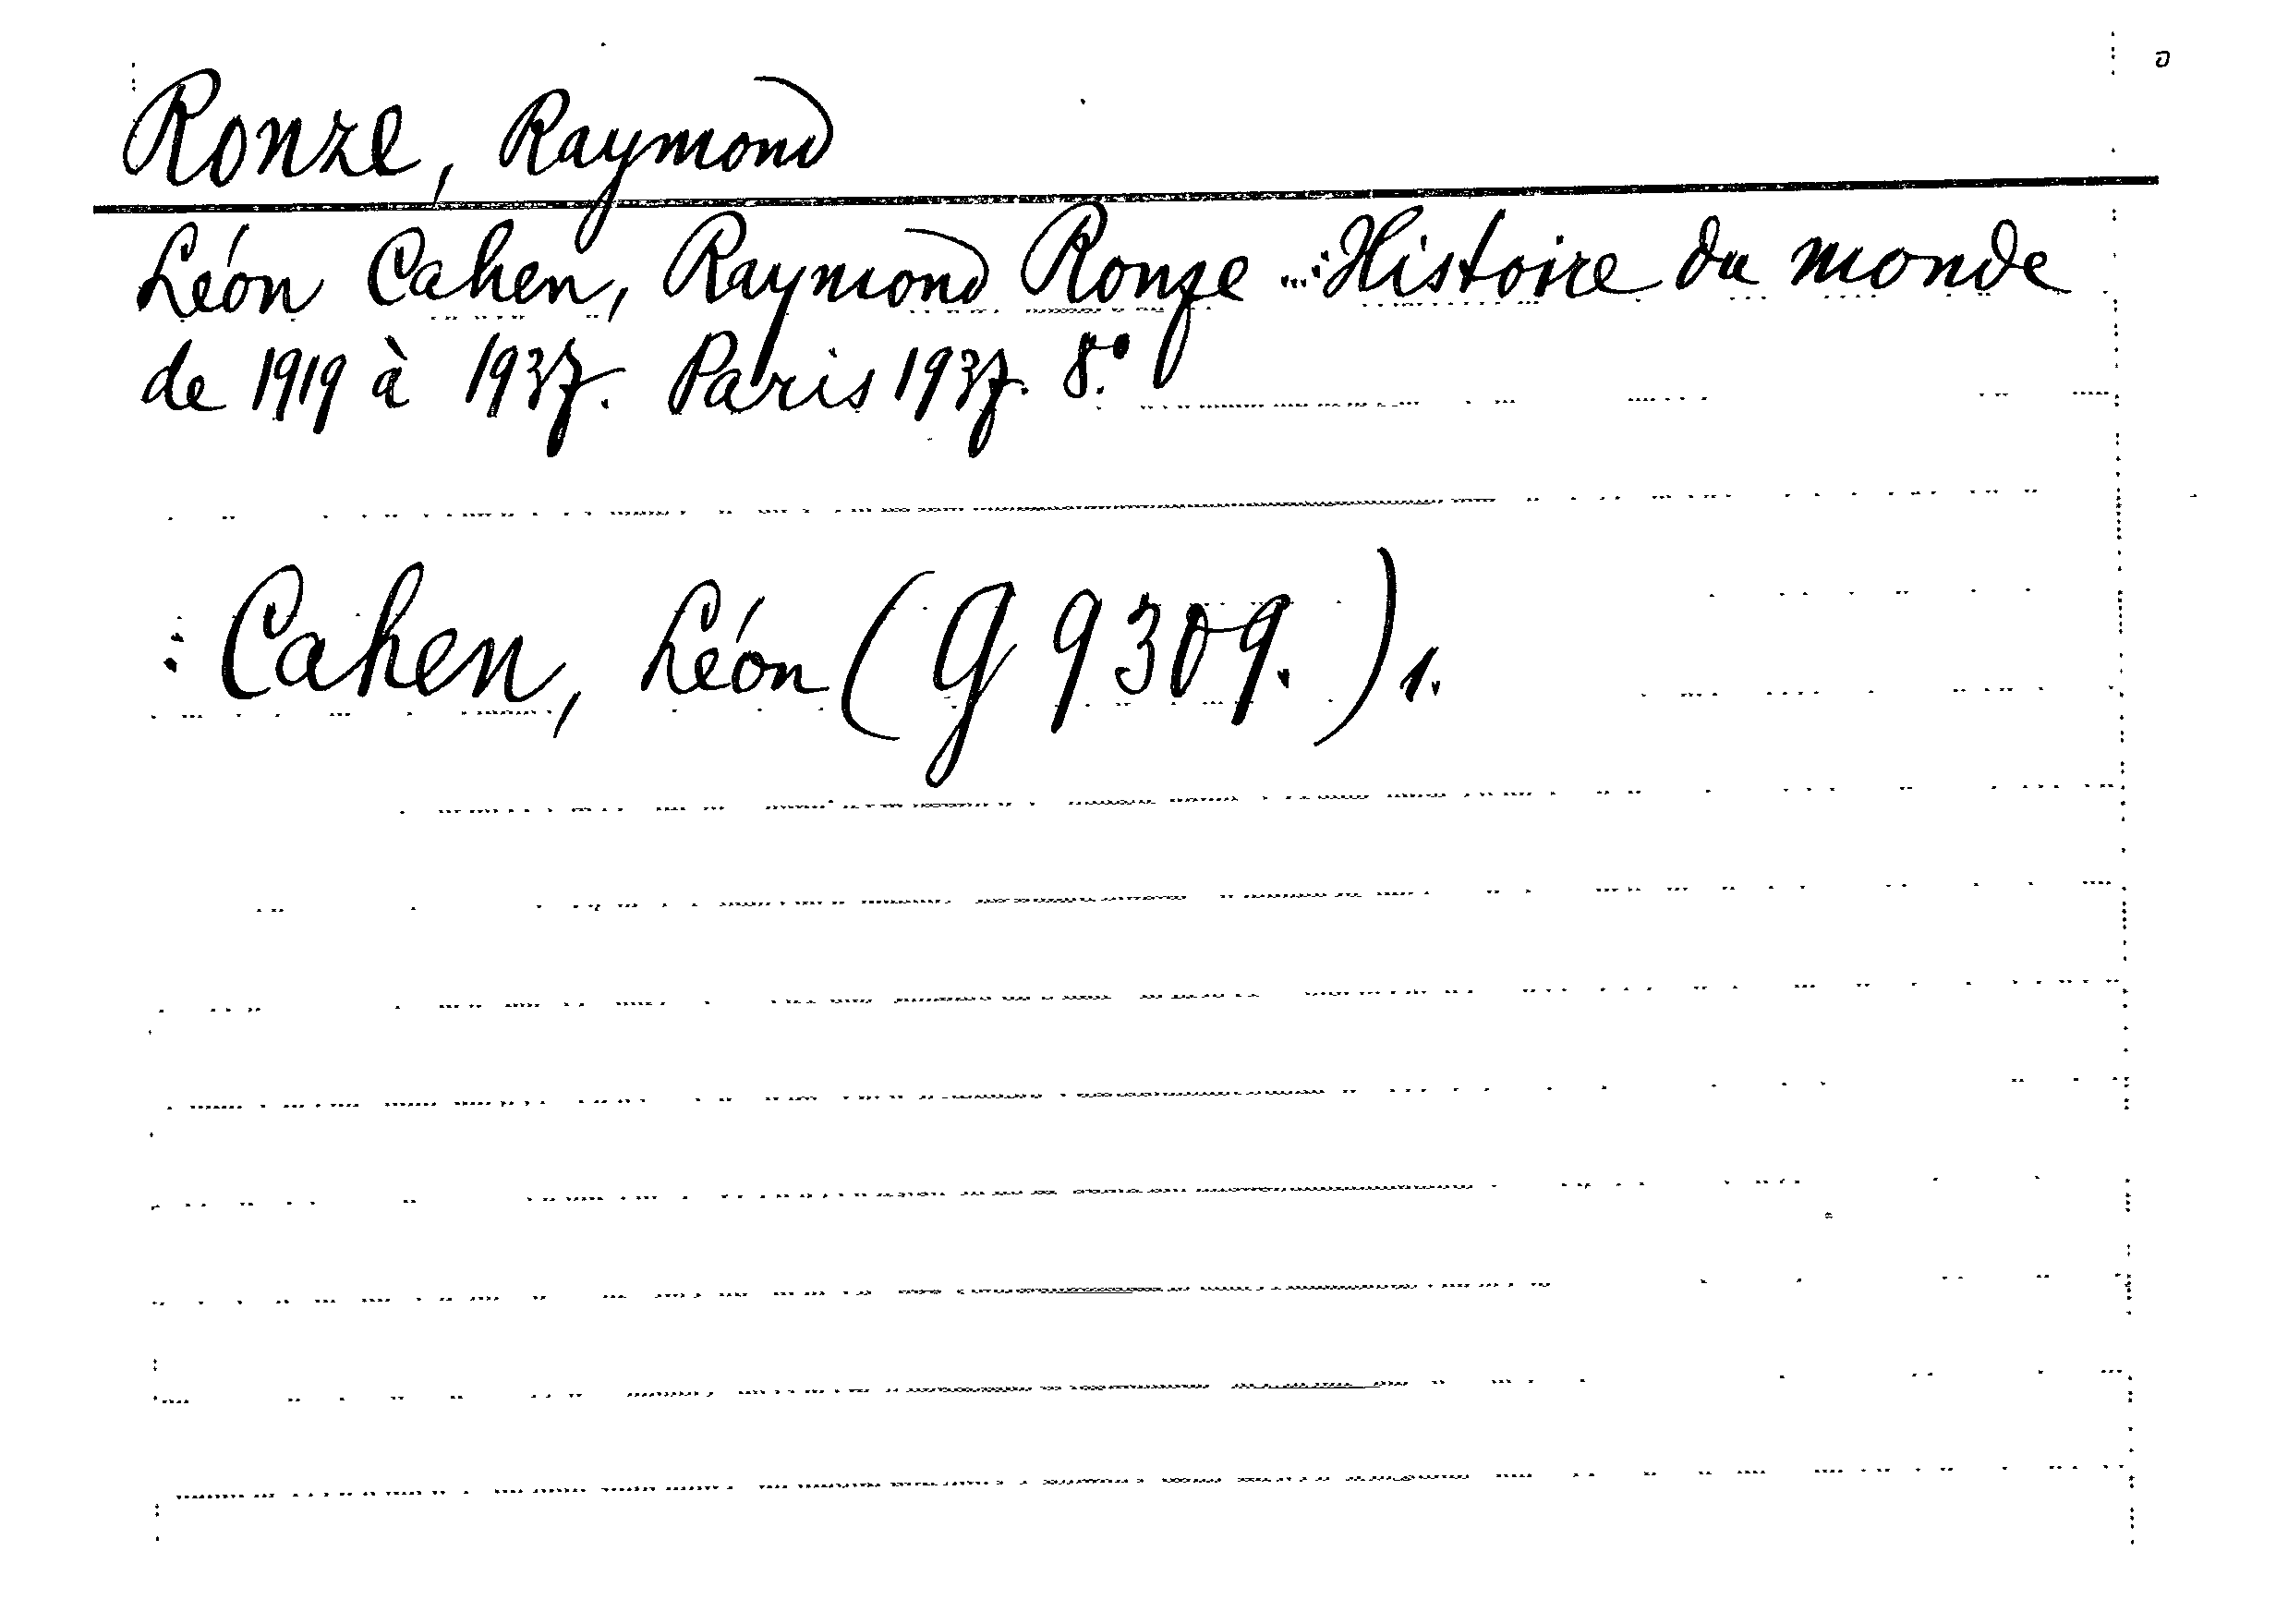 Ronze, Raymond
Léon Cahen, Raymond Ronze ...: Histoire du monde
de 1919 à 1937. Paris 1937. 8.°
: Cahen, Léon (G 9309.) 1.